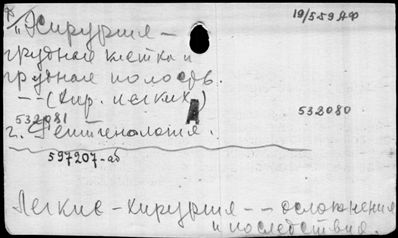 19/559 АФ
"Хирургия –
грудная клетка и
грудная полость.
-- (Хир. легких)
532081 532080
2. Рентгенология.
597207-аб
Легкие – хирургия -- осложнения
и последствия.